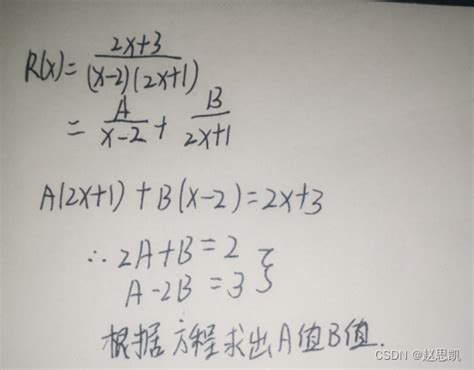 R(x)= (2x+3)/((x-2)(2x+1))
= A/(x-2) + B/(2x+1)
A(2x+1)+B(x-2)=2x+3
∴2A+B=2
A-2B=3 }
根据方程求出A值B值.
CSDN @赵思凯